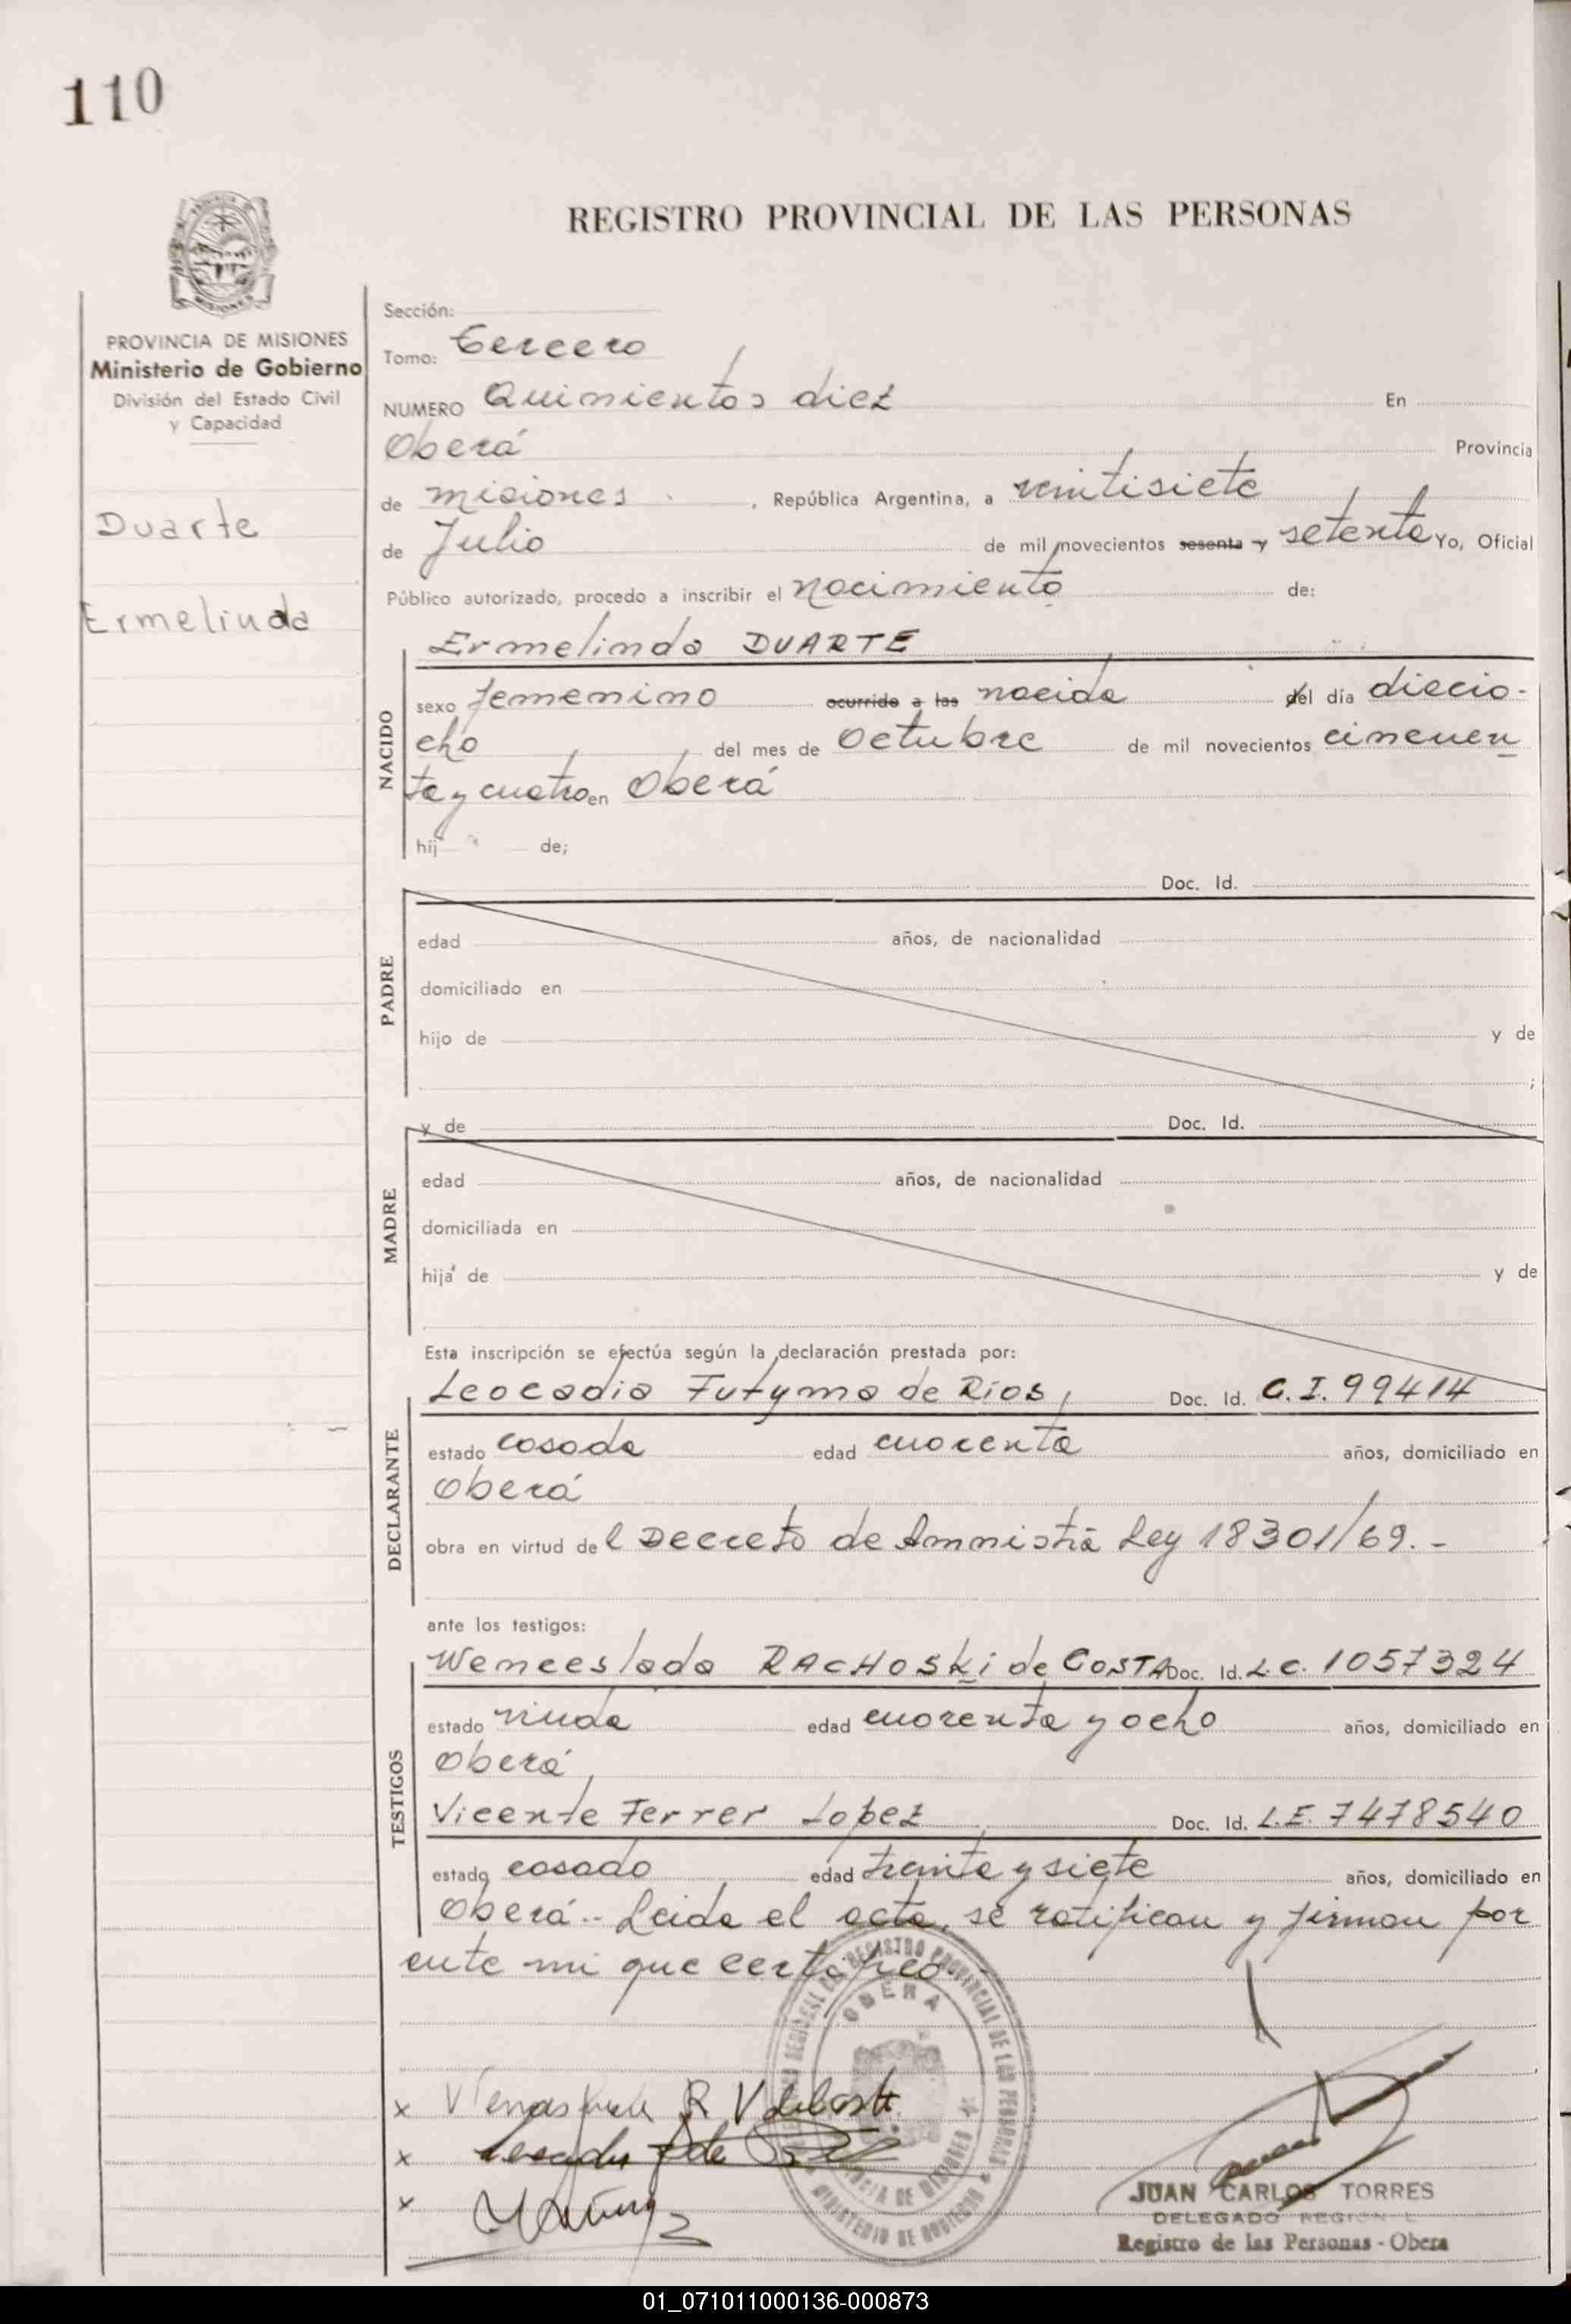 110
REGISTRO PROVINCIAL DE LAS PERSONAS
PROVINCIA DE MISIONES
Ministerio de Gobierno
División del Estado Civil
y Capacidad
Duarte
Ermelinda
Sección:
Tomo: tercero
NUMERO Quinientos diez En
Oberá Provincia
de misiones, República Argentina, a veintisiete
de Julio de mil novecientos sesenta y setenta Yo, Oficial
Público autorizado, procedo a inscribir el nacimiento de:
Ermelinda DUARTE
NACIDO
sexo femenino ocurrido a las nacida del día diecio-
cho del mes de Octubre de mil novecientos cincuen
ta y cuatro en Oberá
hij de;
PADRE
Doc. Id.
edad años, de nacionalidad
domiciliado en
hijo de y de
;
MADRE
y de Doc. Id.
edad años, de nacionalidad
domiciliada en
hija de y de
Esta inscripción se efectúa según la declaración prestada por:
DECLARANTE
Leocadia Futyma de Ríos, Doc. Id. C.I. 99414
estado casada edad cuarenta años, domiciliado en
Oberá
obra en virtud del Decreto de Amnistia Ley 18301/69.-
ante los testigos:
TESTIGOS
Wenceslada RACHOSKi de COSTA Doc. Id. L.C. 1057324
estado viuda edad cuarenta y ocho años, domiciliado en
Oberá,
Vicente Ferrer Lopez, Doc. Id. L.E. 7478540
estado casado edad treinta y siete años, domiciliado en
Oberá.- Leida el acta, se ratifican y firman por
ante mi que certifico.-
REGISTRO PROVINCIAL DE LAS PERSONAS
OBERA
PROVINCIA DE MISIONES
MINISTERIO DE GOBIERNO
x
x
x
JUAN CARLOS TORRES
DELEGADO REGIONAL
Registro de las Personas - Obera
01_071011000136-000873